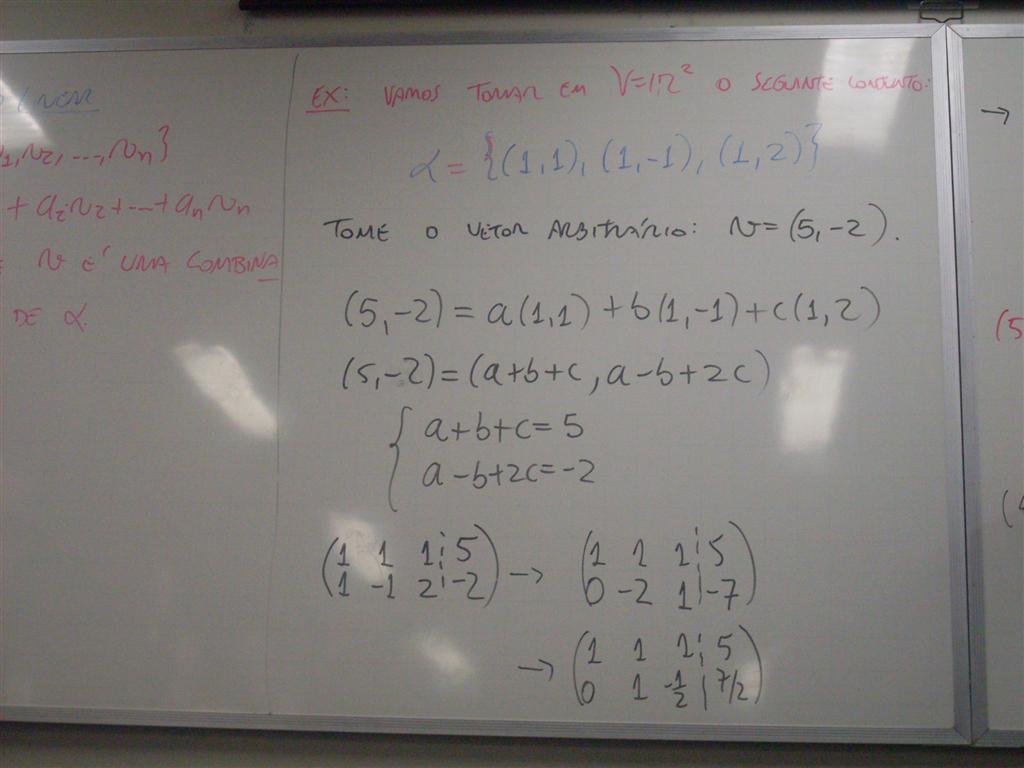 LINEAR
1, v2, ..., vn}
+ a2v2 + ... + anvn
v É UMA COMBINA
DE α.
EX: VAMOS TOMAR EM V=IR² O SEGUINTE CONJUNTO:
α = {(1,1), (1,-1), (1,2)}
TOME O VETOR ARBITRÁRIO: v=(5,-2).
(5,-2) = a(1,1) + b(1,-1) + c(1,2)
(5,-2) = (a+b+c, a-b+2c)
{ a+b+c = 5
a-b+2c = -2
(1 1 1 ¦ 5) → (1 1 1 ¦ 5)
(1 -1 2 ¦ -2) (0 -2 1 ¦ -7)
→ (1 1 1 ¦ 5)
(0 1 -1/2 ¦ 7/2)
→
(5